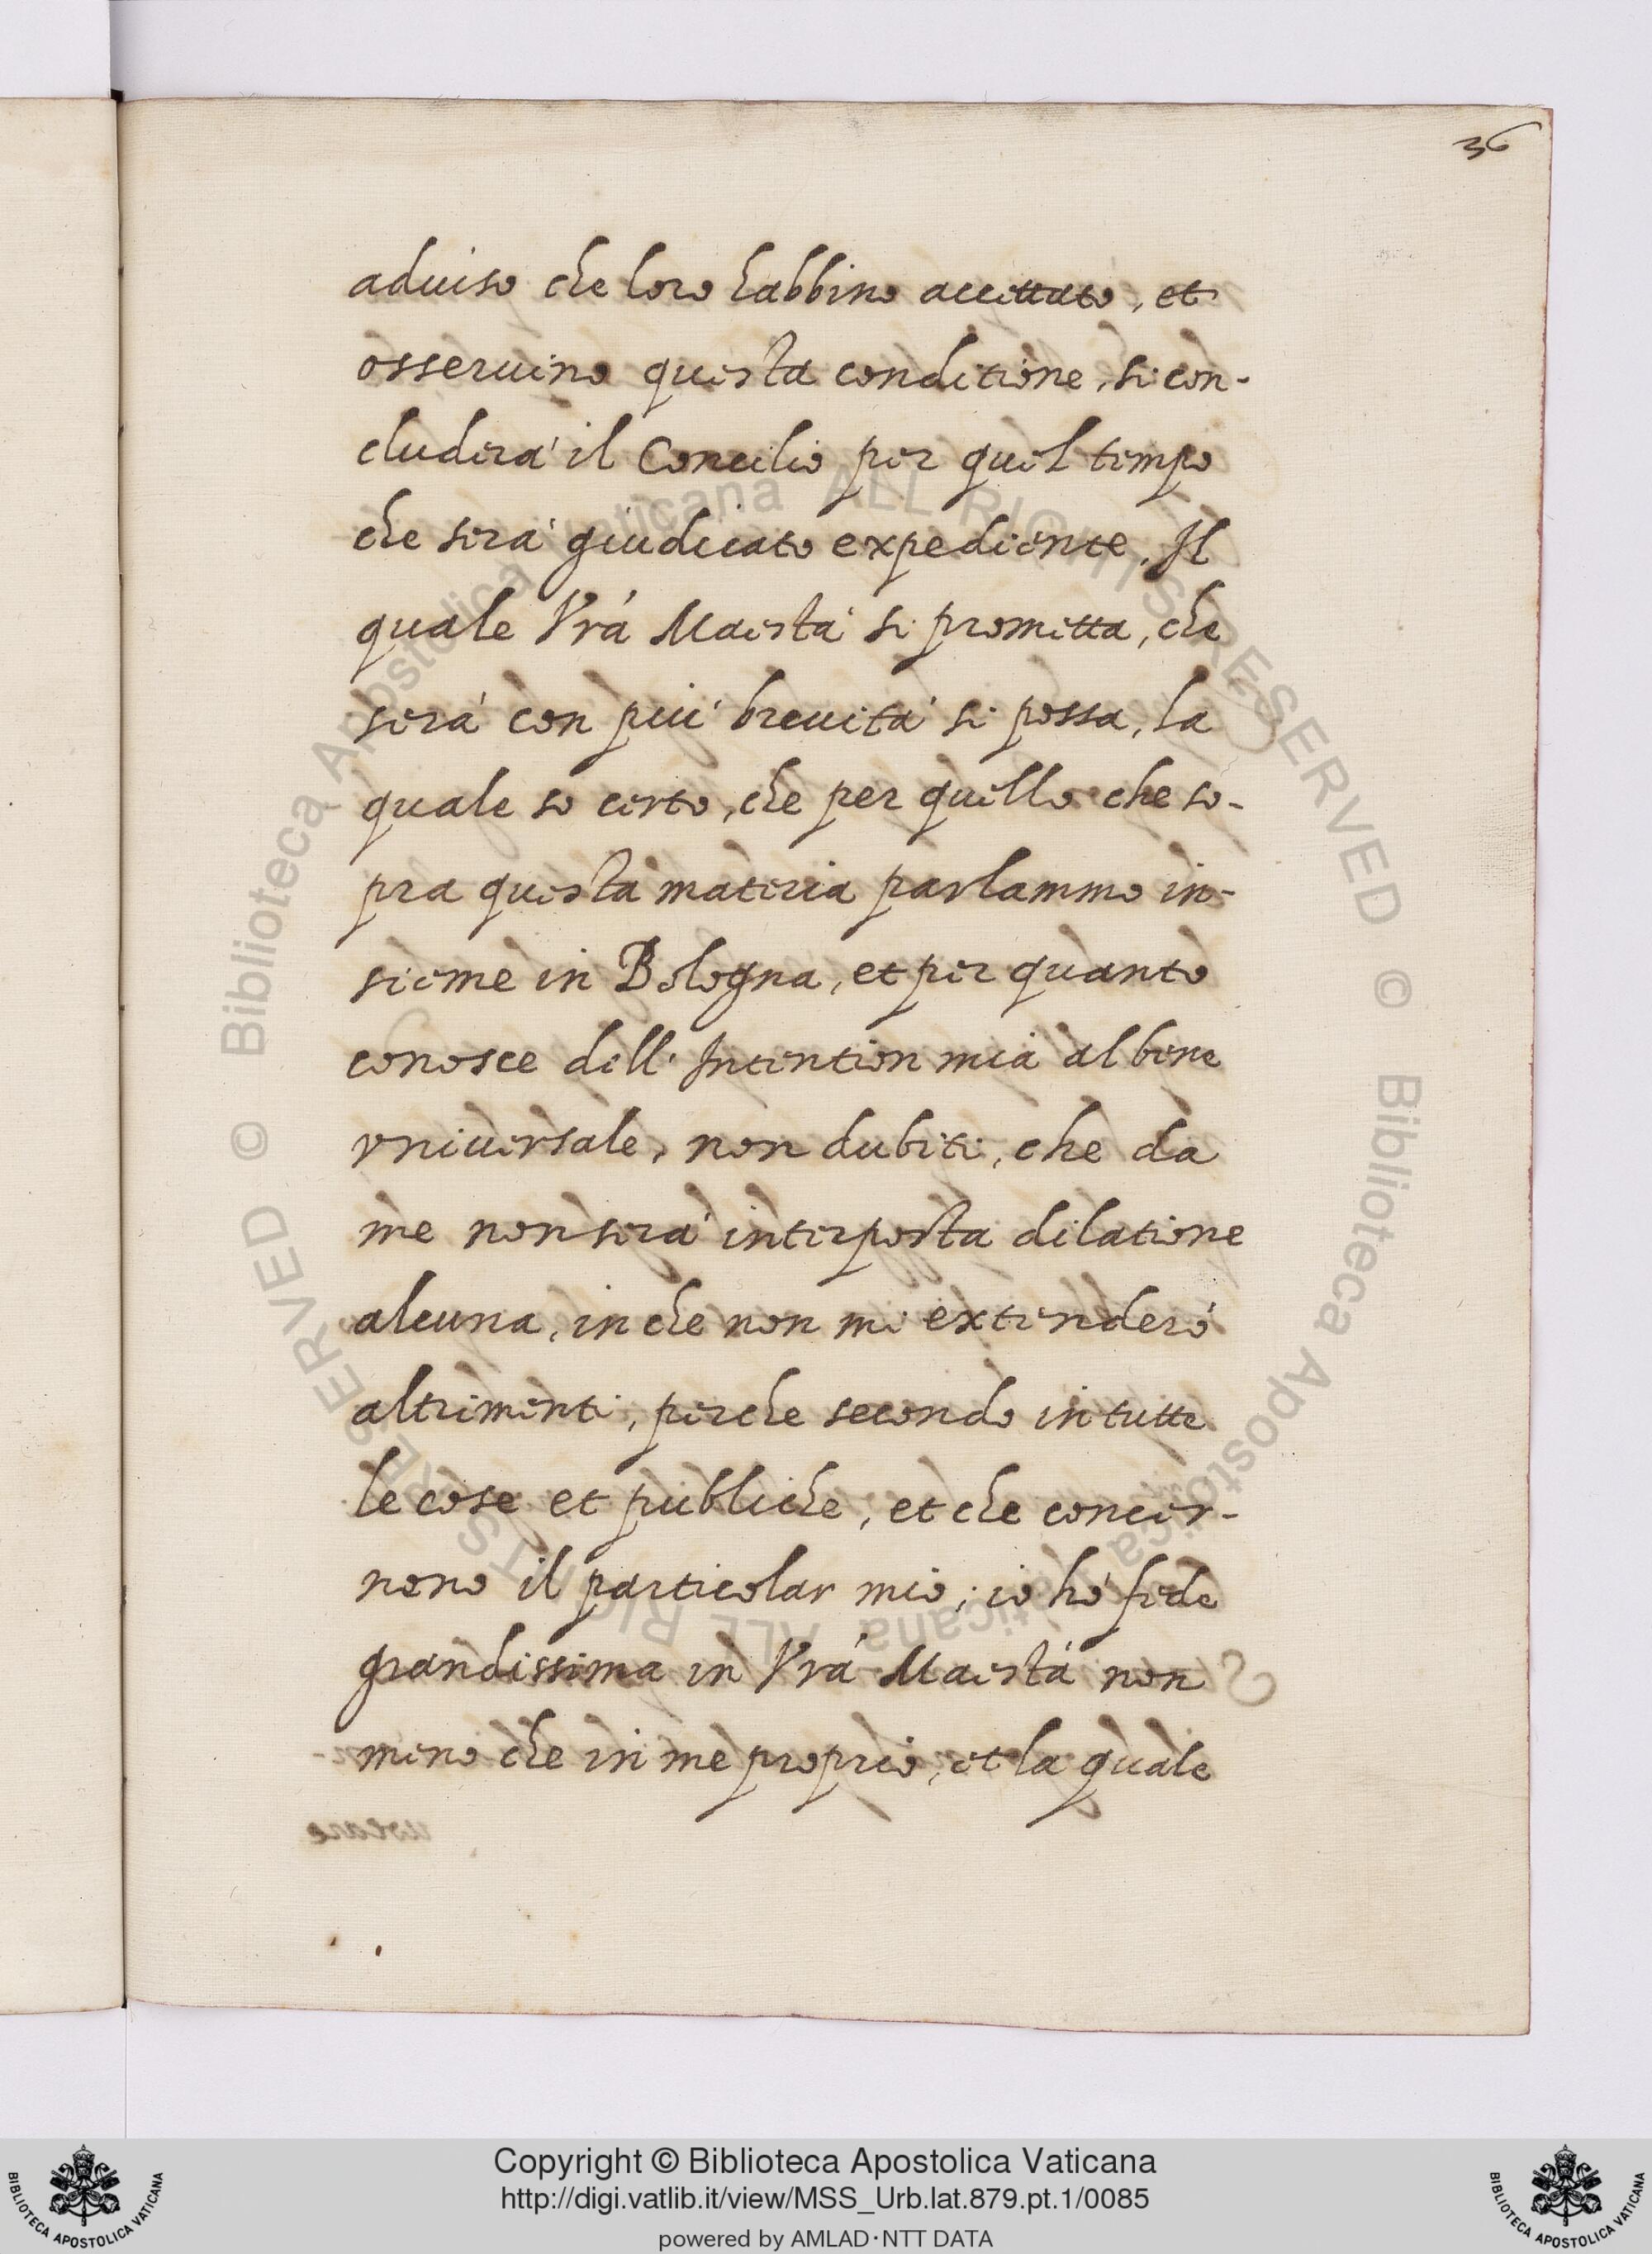 36
aduiso che loro habbino accettato, et
osseruino questa conditione, si con-
cluderà il Concilio per quel tempo
che serà giudicato expediente, Il
quale Vrã Maestà si prometta, che
serà con più breuità si possa, la
quale so certo, che per quello che so-
pra questa materia parlammo in-
sieme in Bologna, et per quanto
conosce dell'Intention mia al bene
vniuersale, non dubiti, che da
me non serà interposta dilatione
alcuna, in che non mi extenderò
altrimenti, perche secondo in tutte
le cose et publiche, et che concer-
nono il particolar mio; io hò fede
grandissima in Vrã Maestà non
meno che in me proprio, et la quale
Copyright © Biblioteca Apostolica Vaticana
http://digi.vatlib.it/view/MSS_Urb.lat.879.pt.1/0085
powered by AMLAD·NTT DATA
BIBLIOTECA APOSTOLICA VATICANA
BIBLIOTECA APOSTOLICA VATICANA
© Biblioteca Apostolica Vaticana ALL RIGHTS RESERVED
© Biblioteca Apostolica Vaticana ALL RIGHTS RESERVED